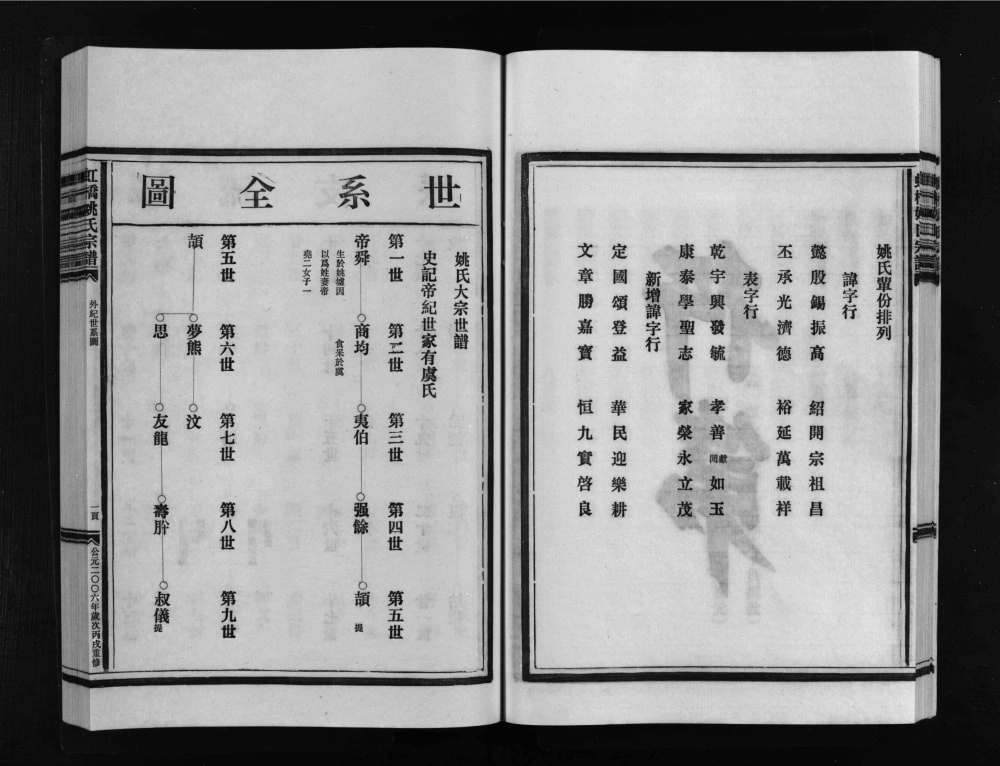 姚氏輩份排列
諱字行
懿殷錫振高　紹開宗祖昌
丕承光濟德　裕延萬載祥
表字行
乾宇興發毓　孝善獻聞如玉
康泰學聖志　家榮永立茂
新增諱字行
定國頌登益　華民迎樂耕
文章勝嘉寶　恒九實啓良
世系全圖
姚氏大宗世譜
史記帝紀世家有虞氏
第一世　第二世　第三世　第四世　第五世
帝舜　生於姚墟因以爲姓妻帝堯二女子一
商均　食采於虞
夷伯
强餘
頡　提
第五世　第六世　第七世　第八世　第九世
頡
夢熊　汶
思　友龍　壽胏　叔儀　提
虹橋姚氏宗譜
外紀世系圖
一頁
公元二〇〇六年歲次丙戌重修